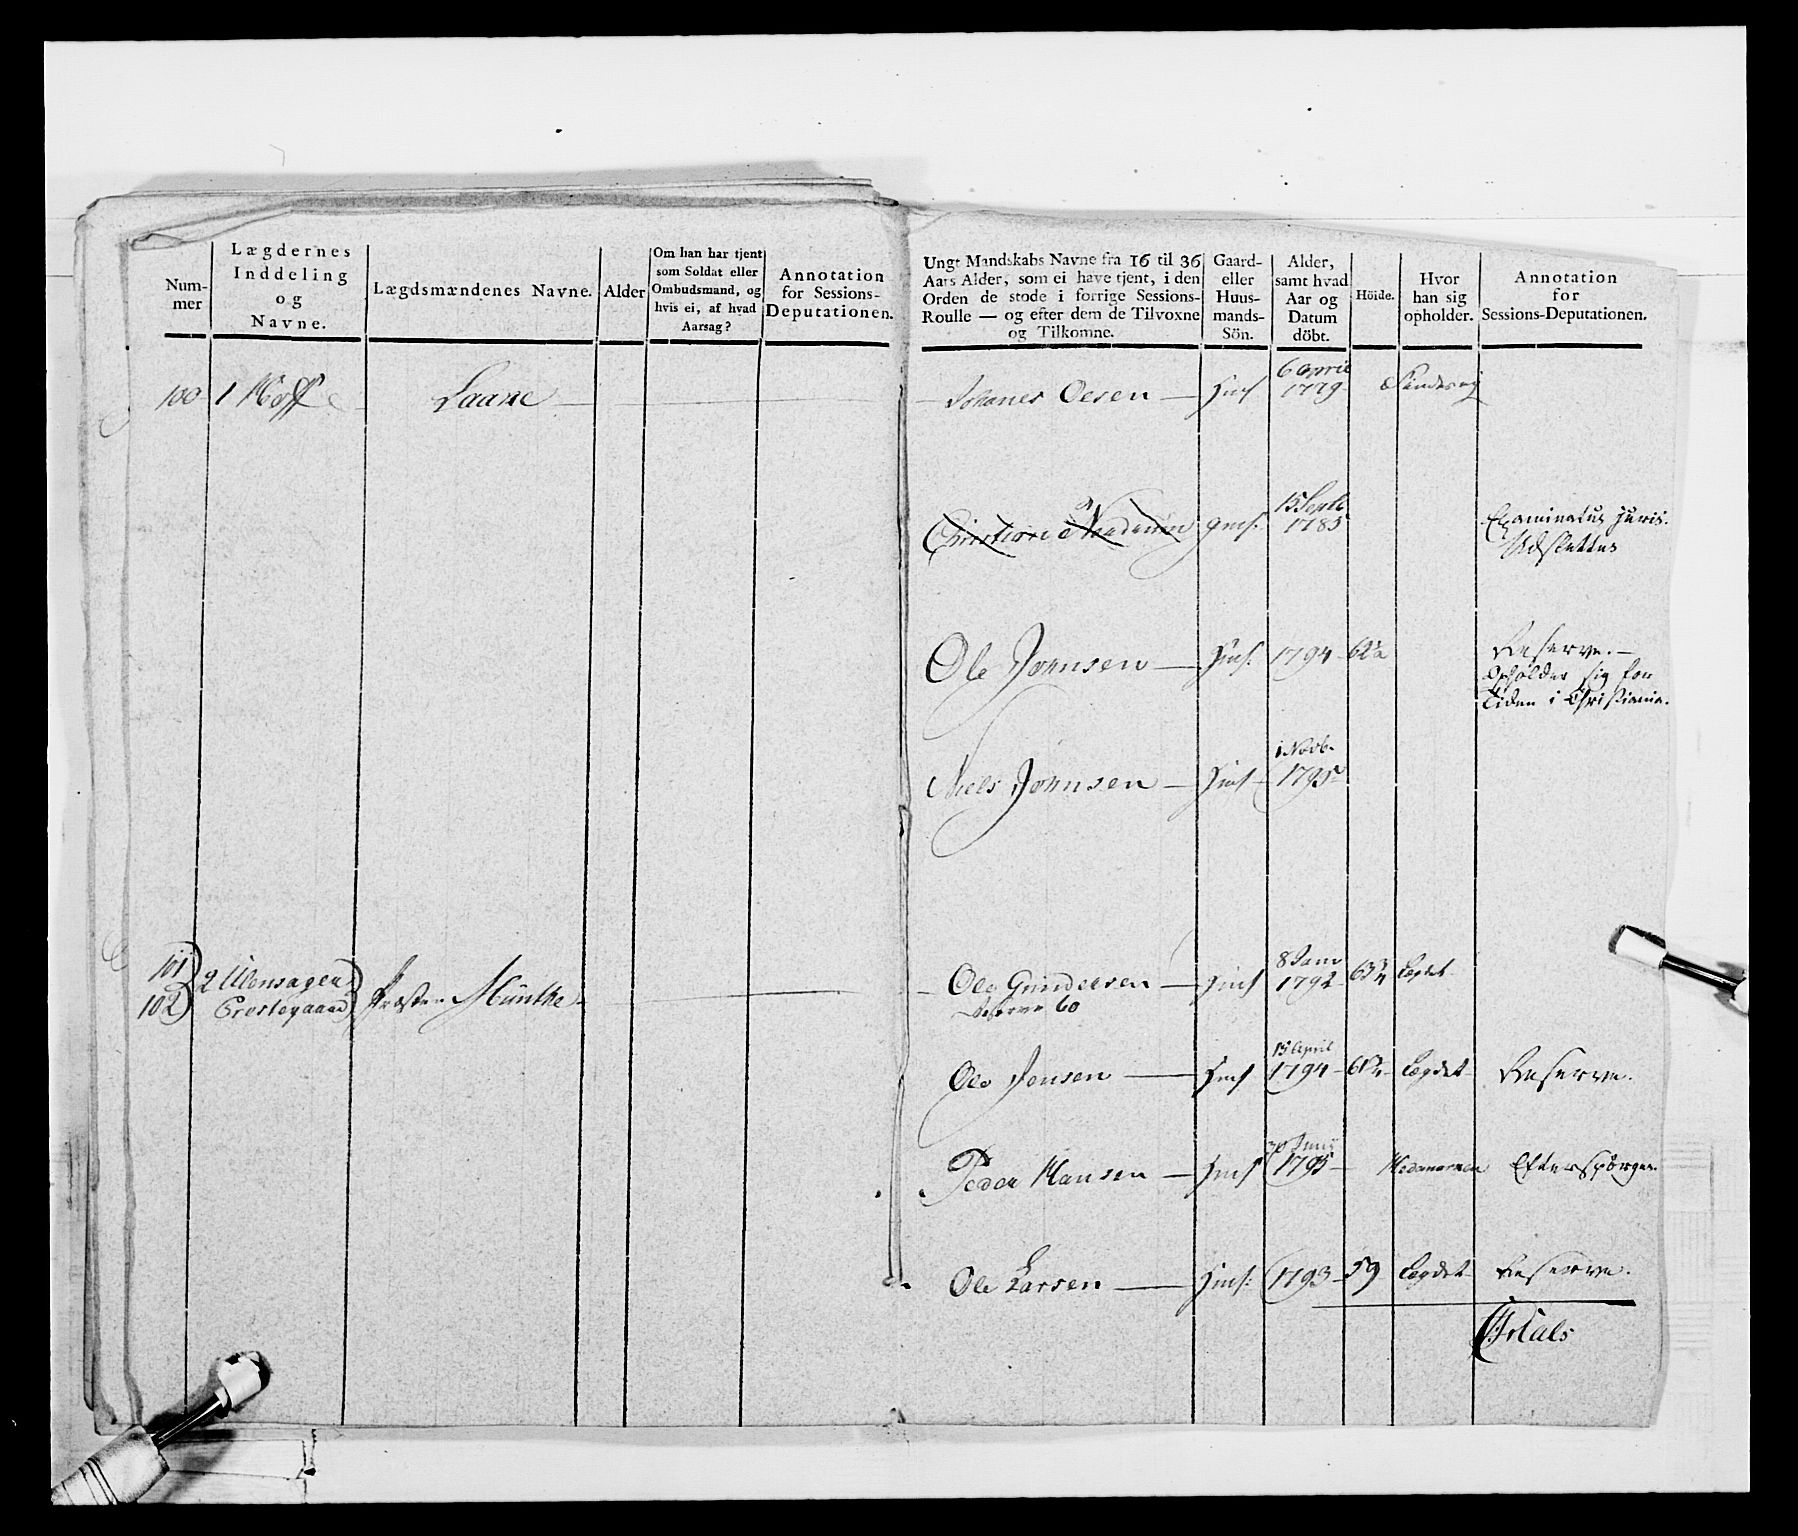 Num-
mer
Lægdernes
Inddeling
og
Navne.
Lægdsmændenes Navne.
Alder
Om han har tjent
som Soldat eller
Ombudsmand, og
hvis ei, af hvad
Aarsag?
Annotation
for Sessions-
Deputationen.
Ungt Mandskabs Navne fra 16 til 36
Aars Alder, som ei have tjent, i den
Orden de stode i forrige Sessions-
Roulle — og efter dem de Tilvoxne
og Tilkomne.
Gaard-
eller
Huus-
mands-
Sön.
Alder,
samt hvad
Aar og
Datum
döbt.
Höide.
Hvor
han sig
opholder.
Annotation
for
Sessions-Deputationen.
100 1 Hoff Laane — Johanes Oesen — Hms 6 April
1779
Christian gms. 15 Septb
1785 Examinatus juris.
Udslettes
Ole Jörnsen — Hms. 1794 62½ Reserve. —
Opholder sig for
Tiden i Christiania.
Niels Jörnsen — Hms 1 Novb.
1795
101
102 2 Ulensagers
Prestegaard Præsten Münthe — Ole Gundersen — Hms 8 Janu
1792 63¾ Legdet
Reserve 60
Ole Jensen — Hms 15 April
1794 Legdet Reserve.
Peder Hansen — Hms 1795 — Hedemarken Efterspörges.
Ole Larsen — Hms: 1793 59 Legdet Reserve.